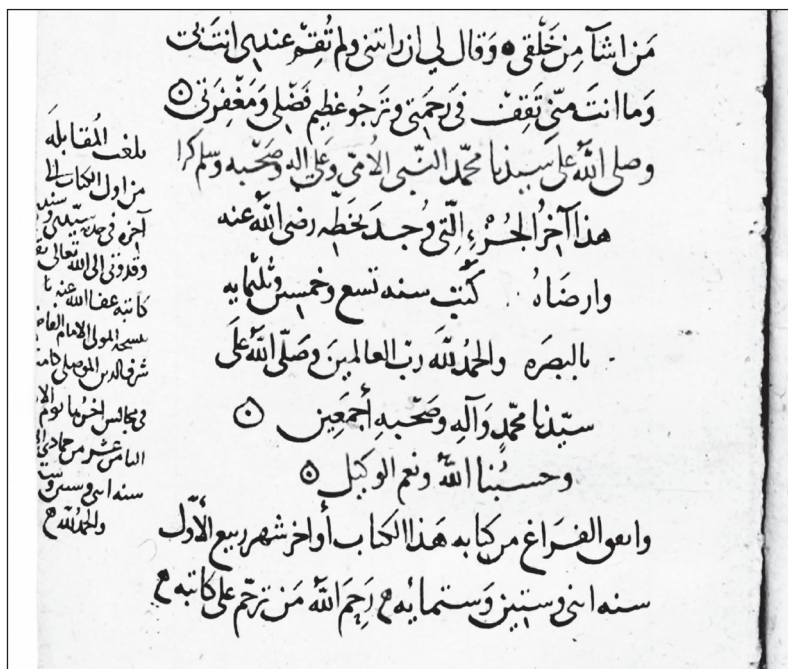 من اشآ من خَلْقى ۞ وَقال لي ان رايتنى ولم تُقِمْ عندى انت لى
وَما انتَ منّى تَقِفْ فى رَحمَتى وترَجُو عَظِيم فَضْلى وَمَغْفِرَتى ۞
وصلى اللهُ على سَيدنا محمّد النَّبى الاُمّى وَعَلى اله وصَحْبه وسلم كرا
هذا آخرُ الجُزْءِ الّتى وُجدَ بخَطّه رضى اللهُ عنه
وارضَاهُ كُتِب سنه تسع وخمسين وثلثمايه
بالبصَرَه والحمدُ للّه ربّ العالمينَ وصَلّى اللهُ عَلَى
سيّدنا محمّدٍ وَآلِهِ وصَحْبهِ أجمَعِين ۞
وحسبُنا اللهُ ونعم الوكيل ۞
واتفق الفَرَاغ من كتابه هَذا الكتاب أواخر شهر ربيع الأوّل
سنه اثنى وستين وستمايه رَحِمَ اللهُ مَن ترحّم على كاتبه
بلغت المُقابلة
من اول الكتاب الى
آخره فى
وقد وفى الى الله تعالى
كاتبه عفا الله عنه
بنسخه المولى الامام
شرف الدين الموصلى
فى مجالس اخرها يوم
الثامن عشر من جمادى
سنه اثنى وستين
والحمد لله